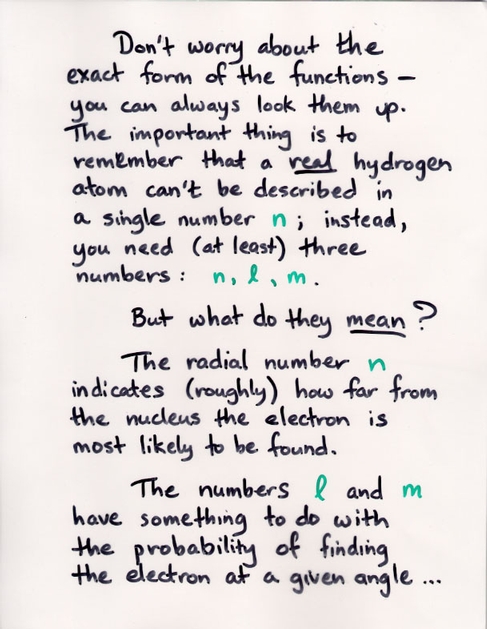 Don't worry about the
exact form of the functions –
you can always look them up.
The important thing is to
remember that a real hydrogen
atom can't be described in
a single number n ; instead,
you need (at least) three
numbers : n, l, m.
But what do they mean ?
The radial number n
indicates (roughly) how far from
the nucleus the electron is
most likely to be found.
The numbers l and m
have something to do with
the probability of finding
the electron at a given angle ...